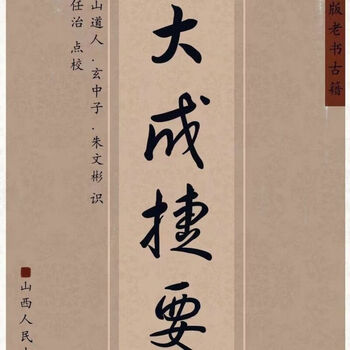 版老书古籍
大成捷要
山道人．玄中子．朱文彬 识
任治 点校
山西人民